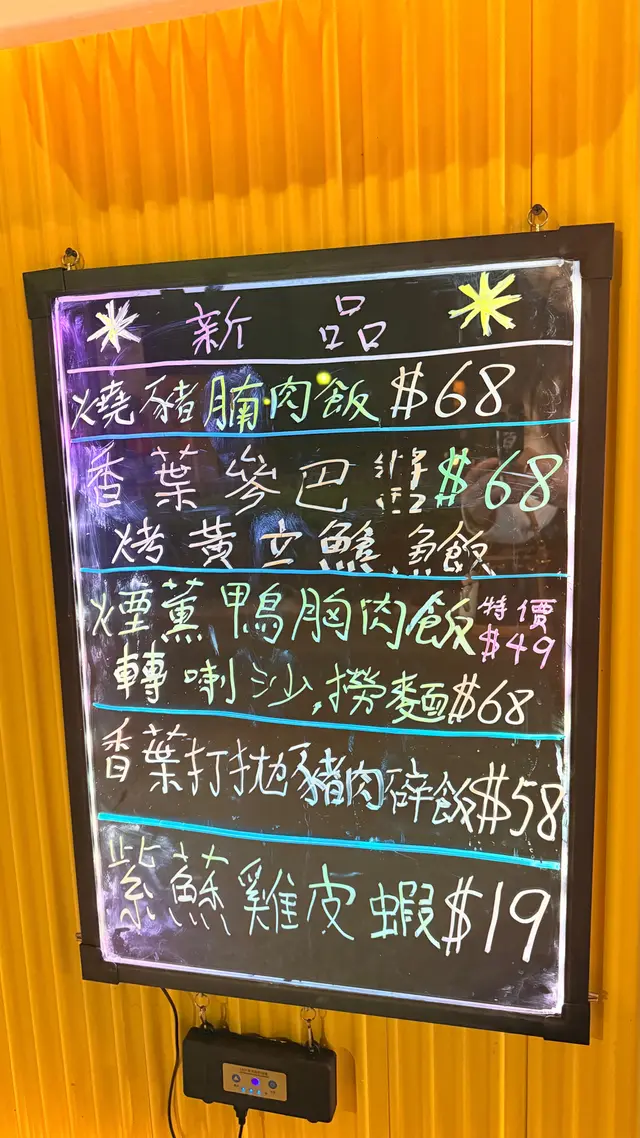 新品
燒豬腩肉飯 $68
香葉參巴醬 $68
烤黃立鱠魚飯
煙薰鴨胸肉飯 特價 $49
轉喇沙撈麵 $68
香葉打拋豬肉碎飯 $58
紫蘇雞皮蝦 $19